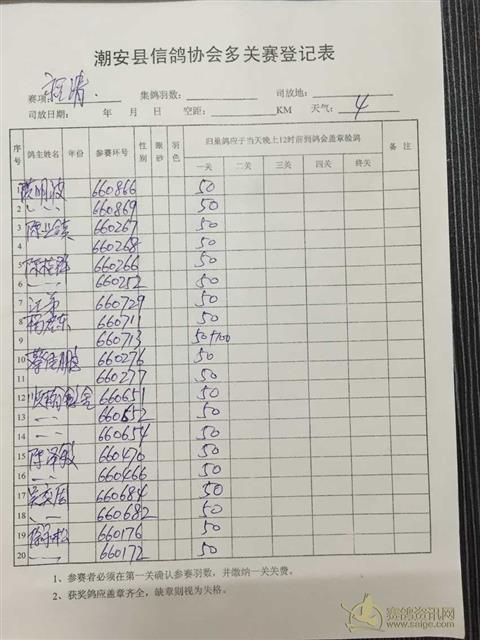 潮安县信鸽协会多关赛登记表
赛项: 集鸽羽数: 司放地:
司放日期: 年 月 日 空距: KM 天气: 4
序号 鸽主姓名 年份 参赛环号 性别 眼砂 羽色 归巢鸽应于当天晚上12时前到鸽会盖章验鸽 备注
一关 二关 三关 四关 终关
1 660866 50
2 660869 50
3 660267 50
4 660268 50
5 660266 50
6 660252 50
7 660729 50
8 660711 50
9 660713 50+100
10 660276 50
11 660277 50
12 660651 50
13 660652 50
14 660654 50
15 陈泽敏 660476 50
16 660466 50
17 660684 50
18 660682 50
19 660176 50
20 660172 50
1、参赛者必须在第一关确认参赛羽数,并缴纳一关关费。
2、获奖鸽应盖章齐全,缺章则视为失格。
赛鸽资讯网
www.saige.com